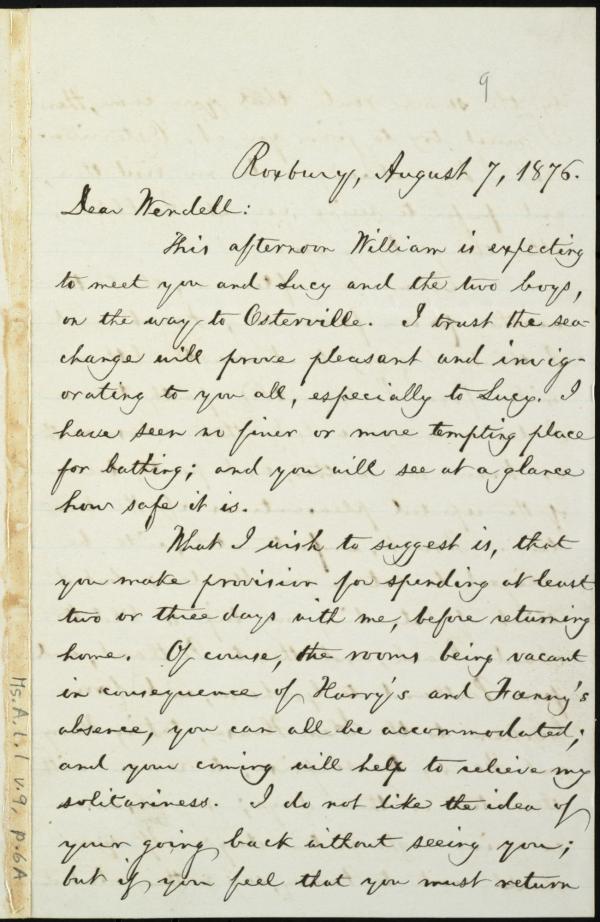 9
Roxbury, August 7, 1876.
Dear Wendell:
This afternoon William is expecting
to meet you and Lucy and the two boys,
on the way to Osterville. I trust the sea-
change will prove pleasant and invig-
orating to you all, especially to Lucy. I
have seen no finer or more tempting place
for bathing; and you will see at a glance
how safe it is.
What I wish to suggest is, that
you make provision for spending at least
two or three days with me, before returning
home. Of course, the rooms being vacant
in consequence of Harry's and Fanny's
absence, you can all be accommodated;
and your coming will help to relieve my
solitariness. I do not like the idea of
your going back without seeing you;
but if you feel that you must return
Ms. A. 1. 1 v. 9, p. 6A